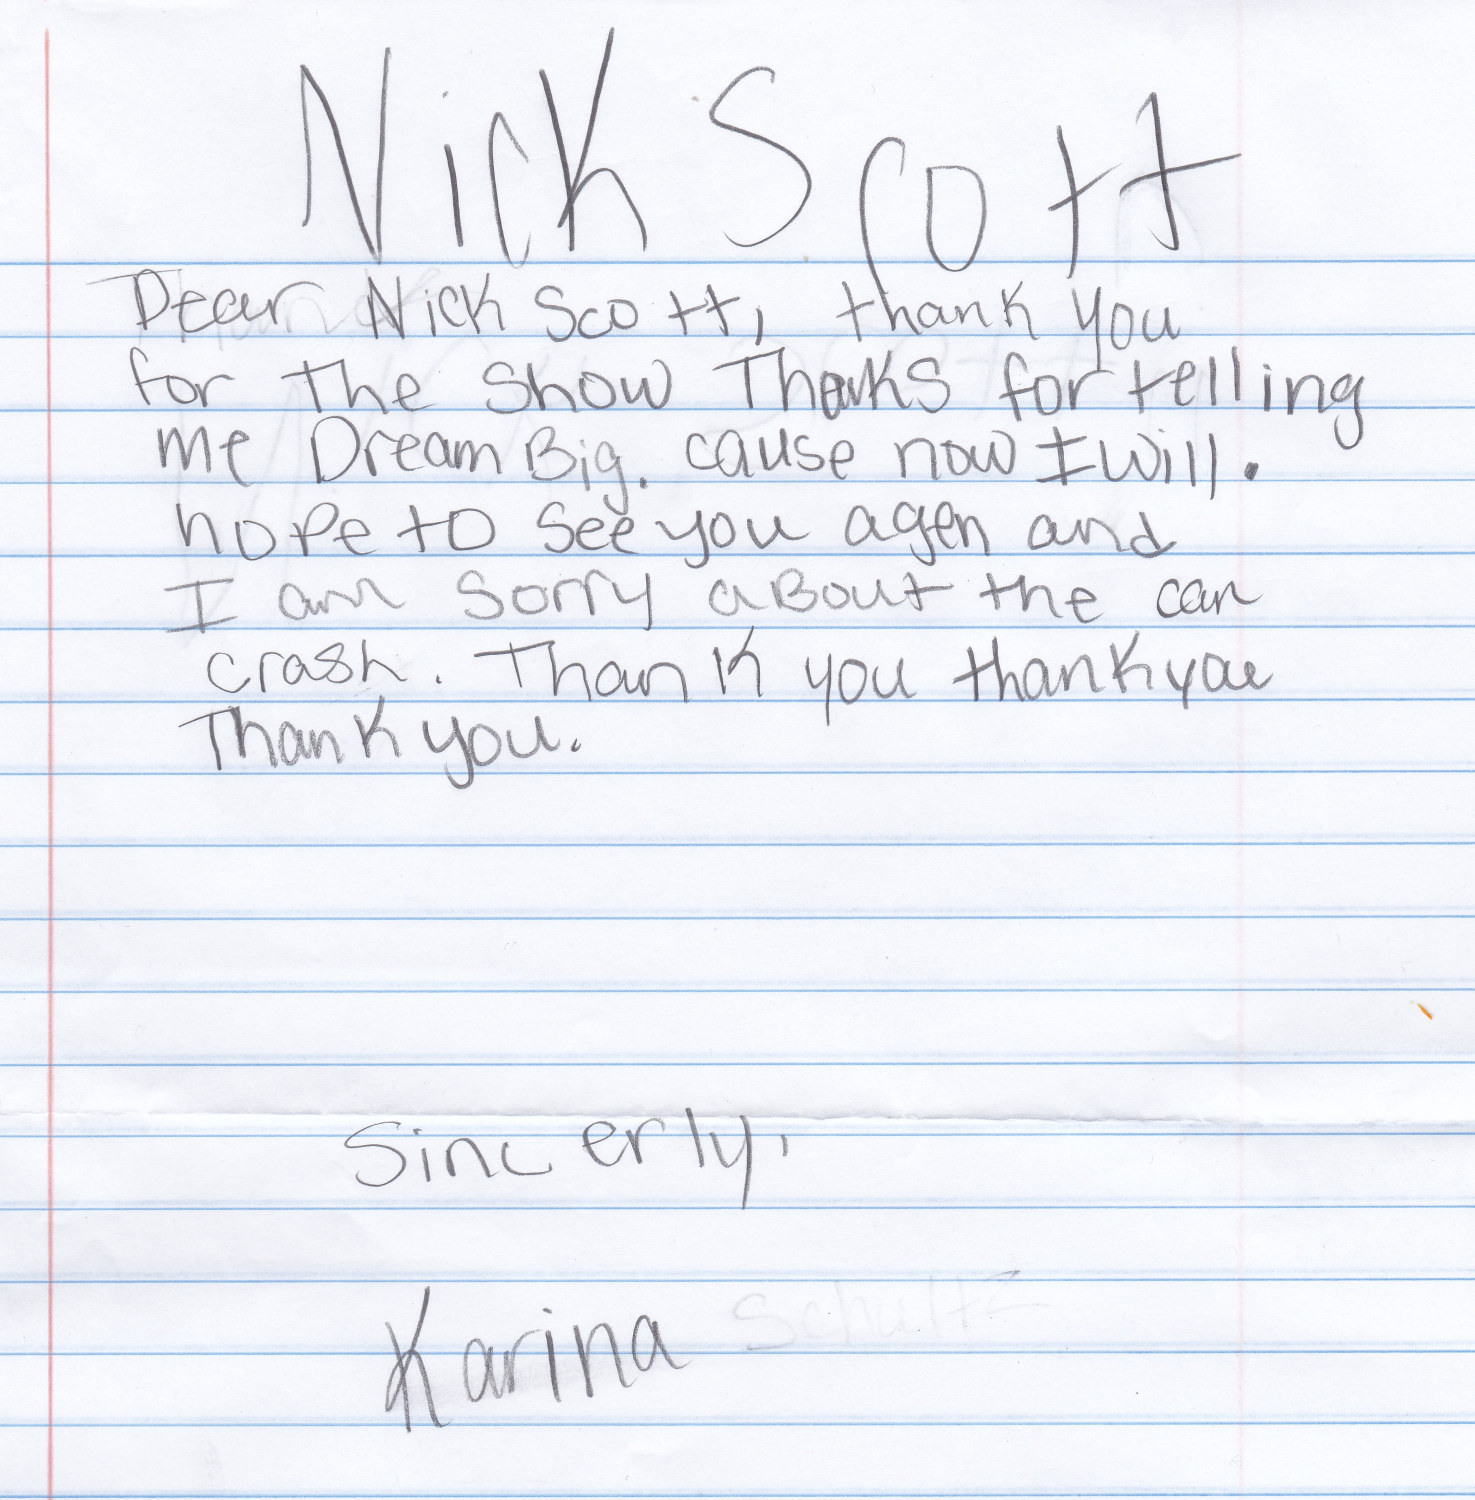 Nick Scott
Dear Nick Scott, thank you
for the show Thanks for telling
me Dream Big. cause now I will.
hope to see you agen and
I am sorry about the car
crash. Thank you thank you
Thank you.
Sincerly,
Karina Schultz